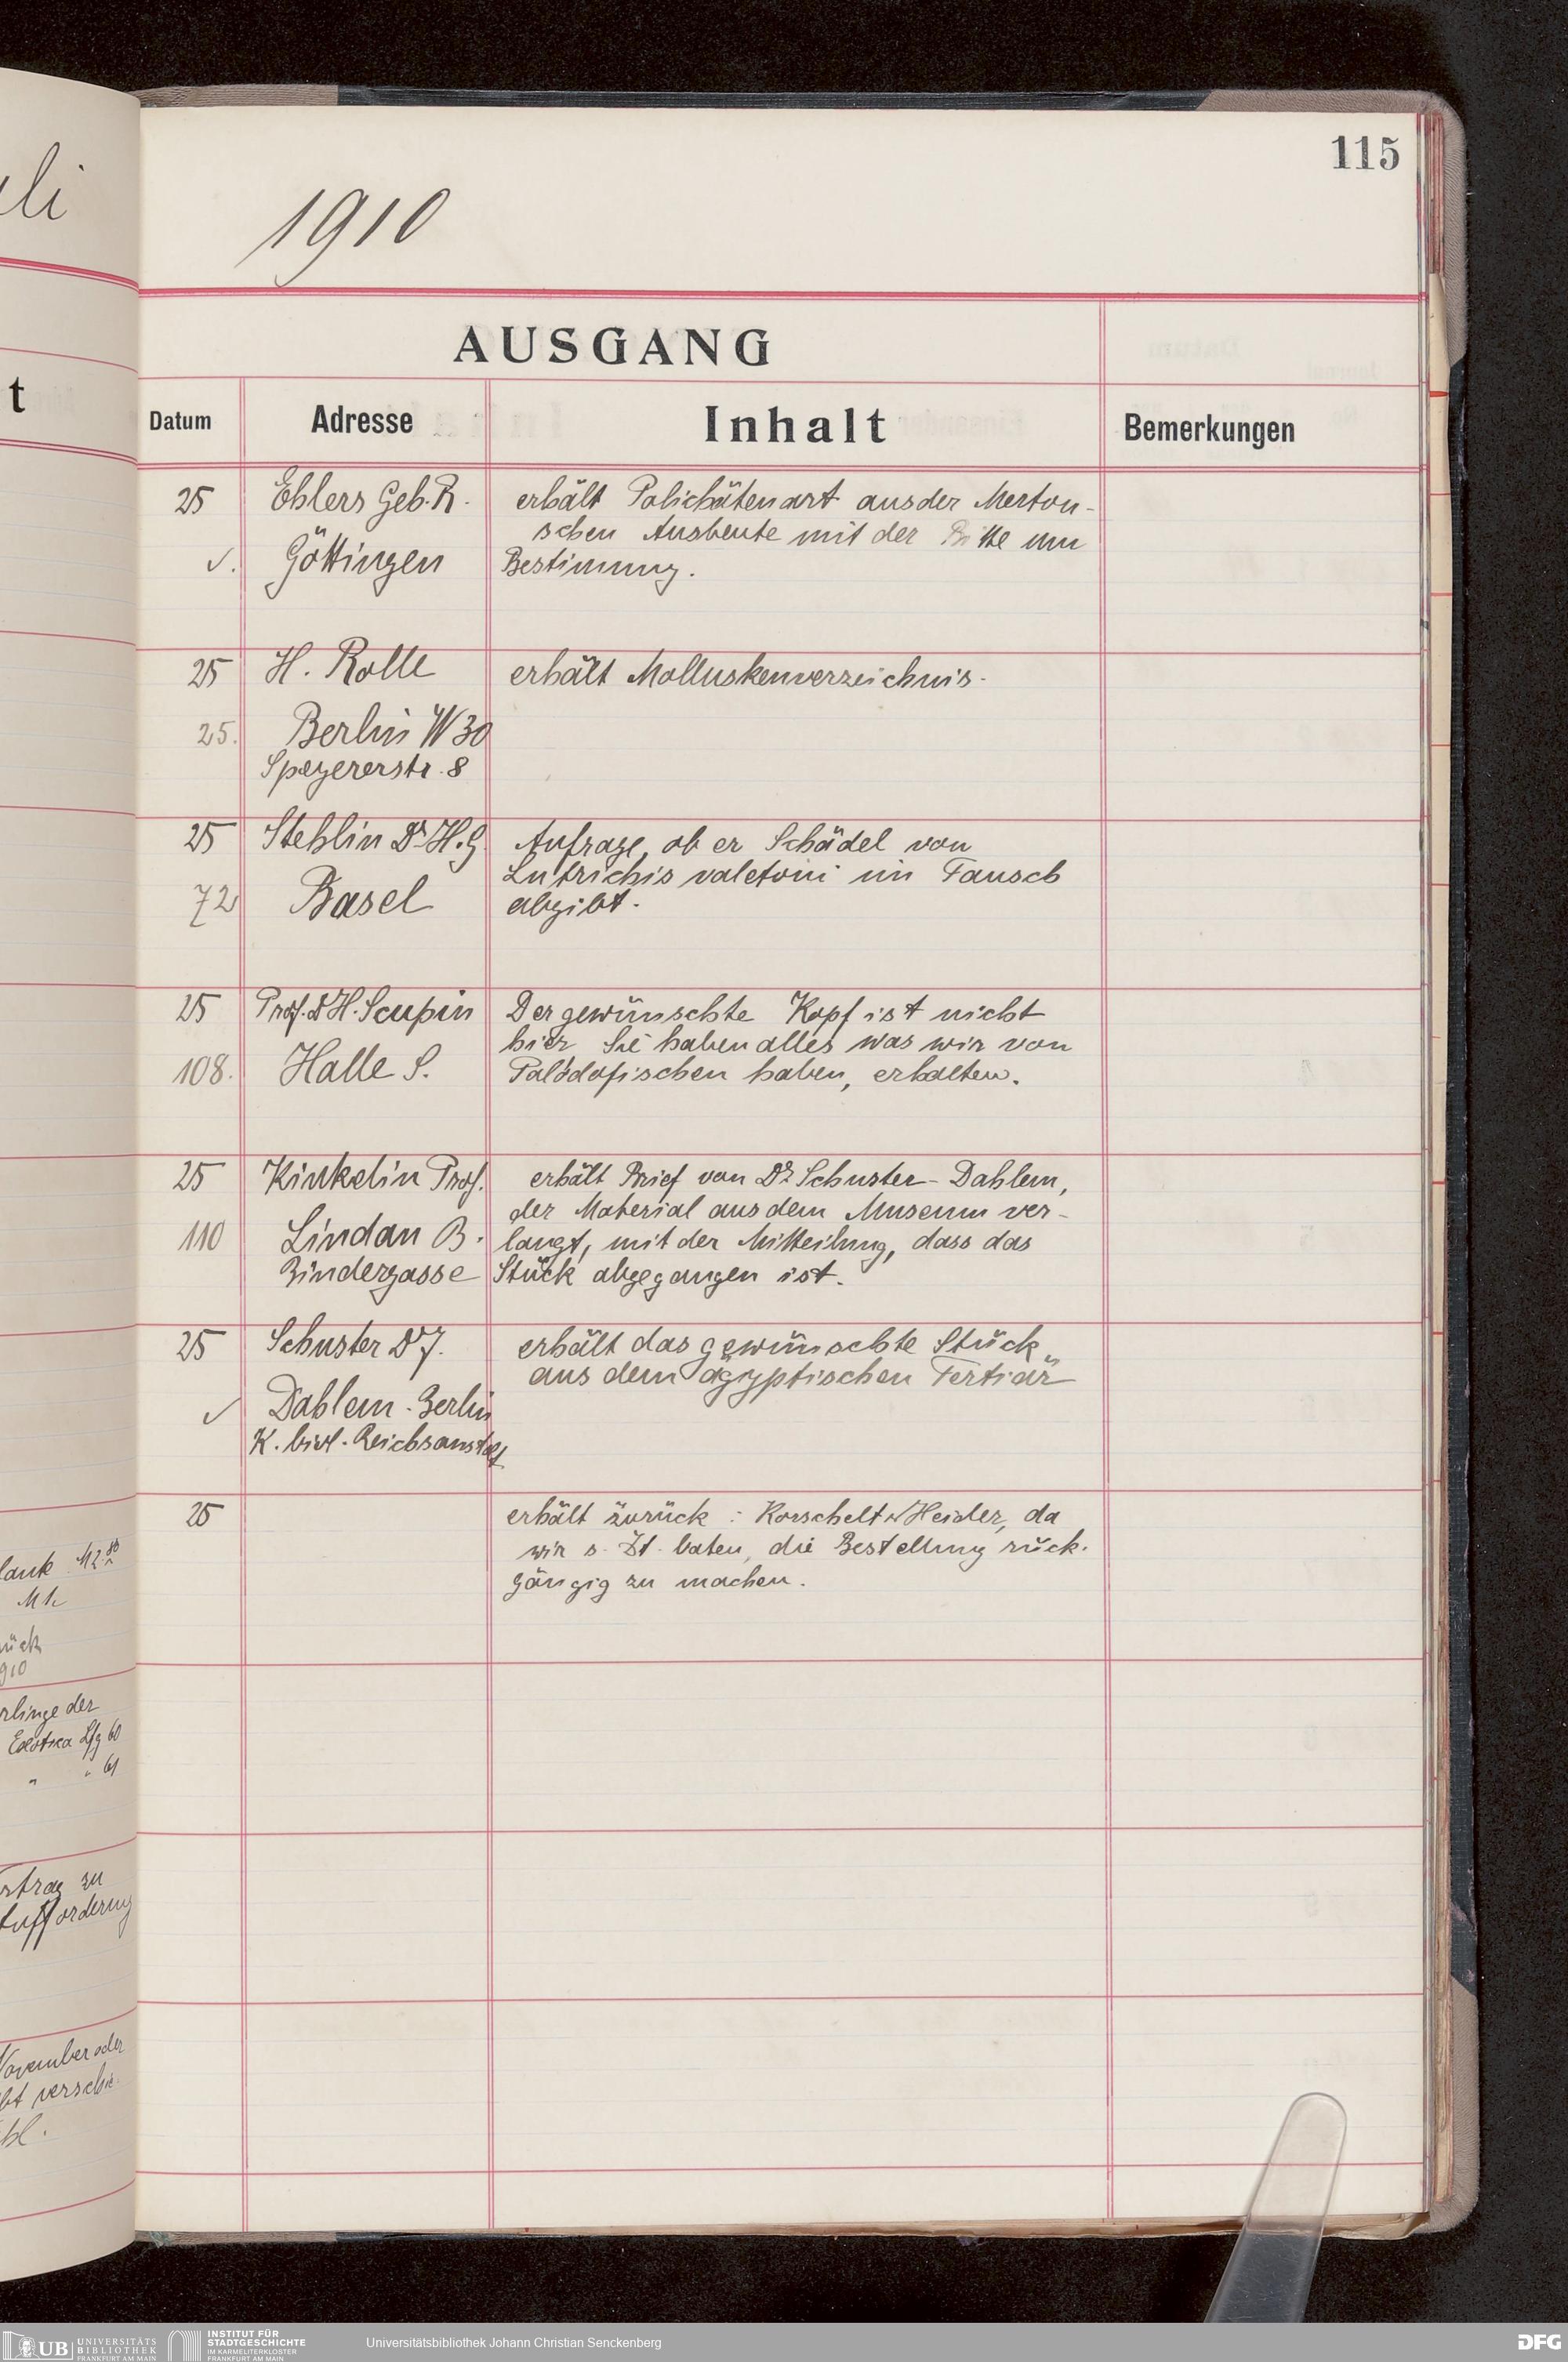 115
1910
AUSGANG
Datum Adresse Inhalt Bemerkungen
25 Ehlers Geb. R. erhält Polichätenart aus der Merton-
schen Ausbeute mit der Bitte um
✓. Göttingen Bestimmung.
25 H. Rolle erhält Molluskenverzeichnis.
25. Berlin W 30
Speyererstr. 8
25 Stehlin Dr. H. G Anfrage, ob er Schädel von
Lutrichis valetoni im Tausch
72 Basel abgibt.
25 Prof. Dr H. Scupin Der gewünschte Kopf ist nicht
hier Sie haben alles was wir von
108. Halle S. haben, erhalten.
25 Kinkelin Prof. erhält Brief von Dr. Schuster-Dahlem,
der Material aus dem Museum ver-
110 Lindau B. langt, mit der Mitteilung, dass das
Bindergasse Stück abgegangen ist.
25 Schuster Dr J. erhält das gewünschte Stück
aus dem ägyptischen Tertiär
✓ Dahlem-Berlin
K. biol. Reichsanstalt
25 erhält zurück: Korschelt u Heider, da
wir s. Zt. baten, die Bestellung rück-
gängig zu machen.
uli
t
lank M 2.80
M 1.
rück
910
rlinge der
Exotica Lfg 60
" " 61
rtrag zu
Aufforderung
November oder
bt verschie-
bl.
UB UNIVERSITÄTS
BIBLIOTHEK
FRANKFURT AM MAIN
INSTITUT FÜR
STADTGESCHICHTE
IM KARMELITERKLOSTER
FRANKFURT AM MAIN
Universitätsbibliothek Johann Christian Senckenberg
DFG